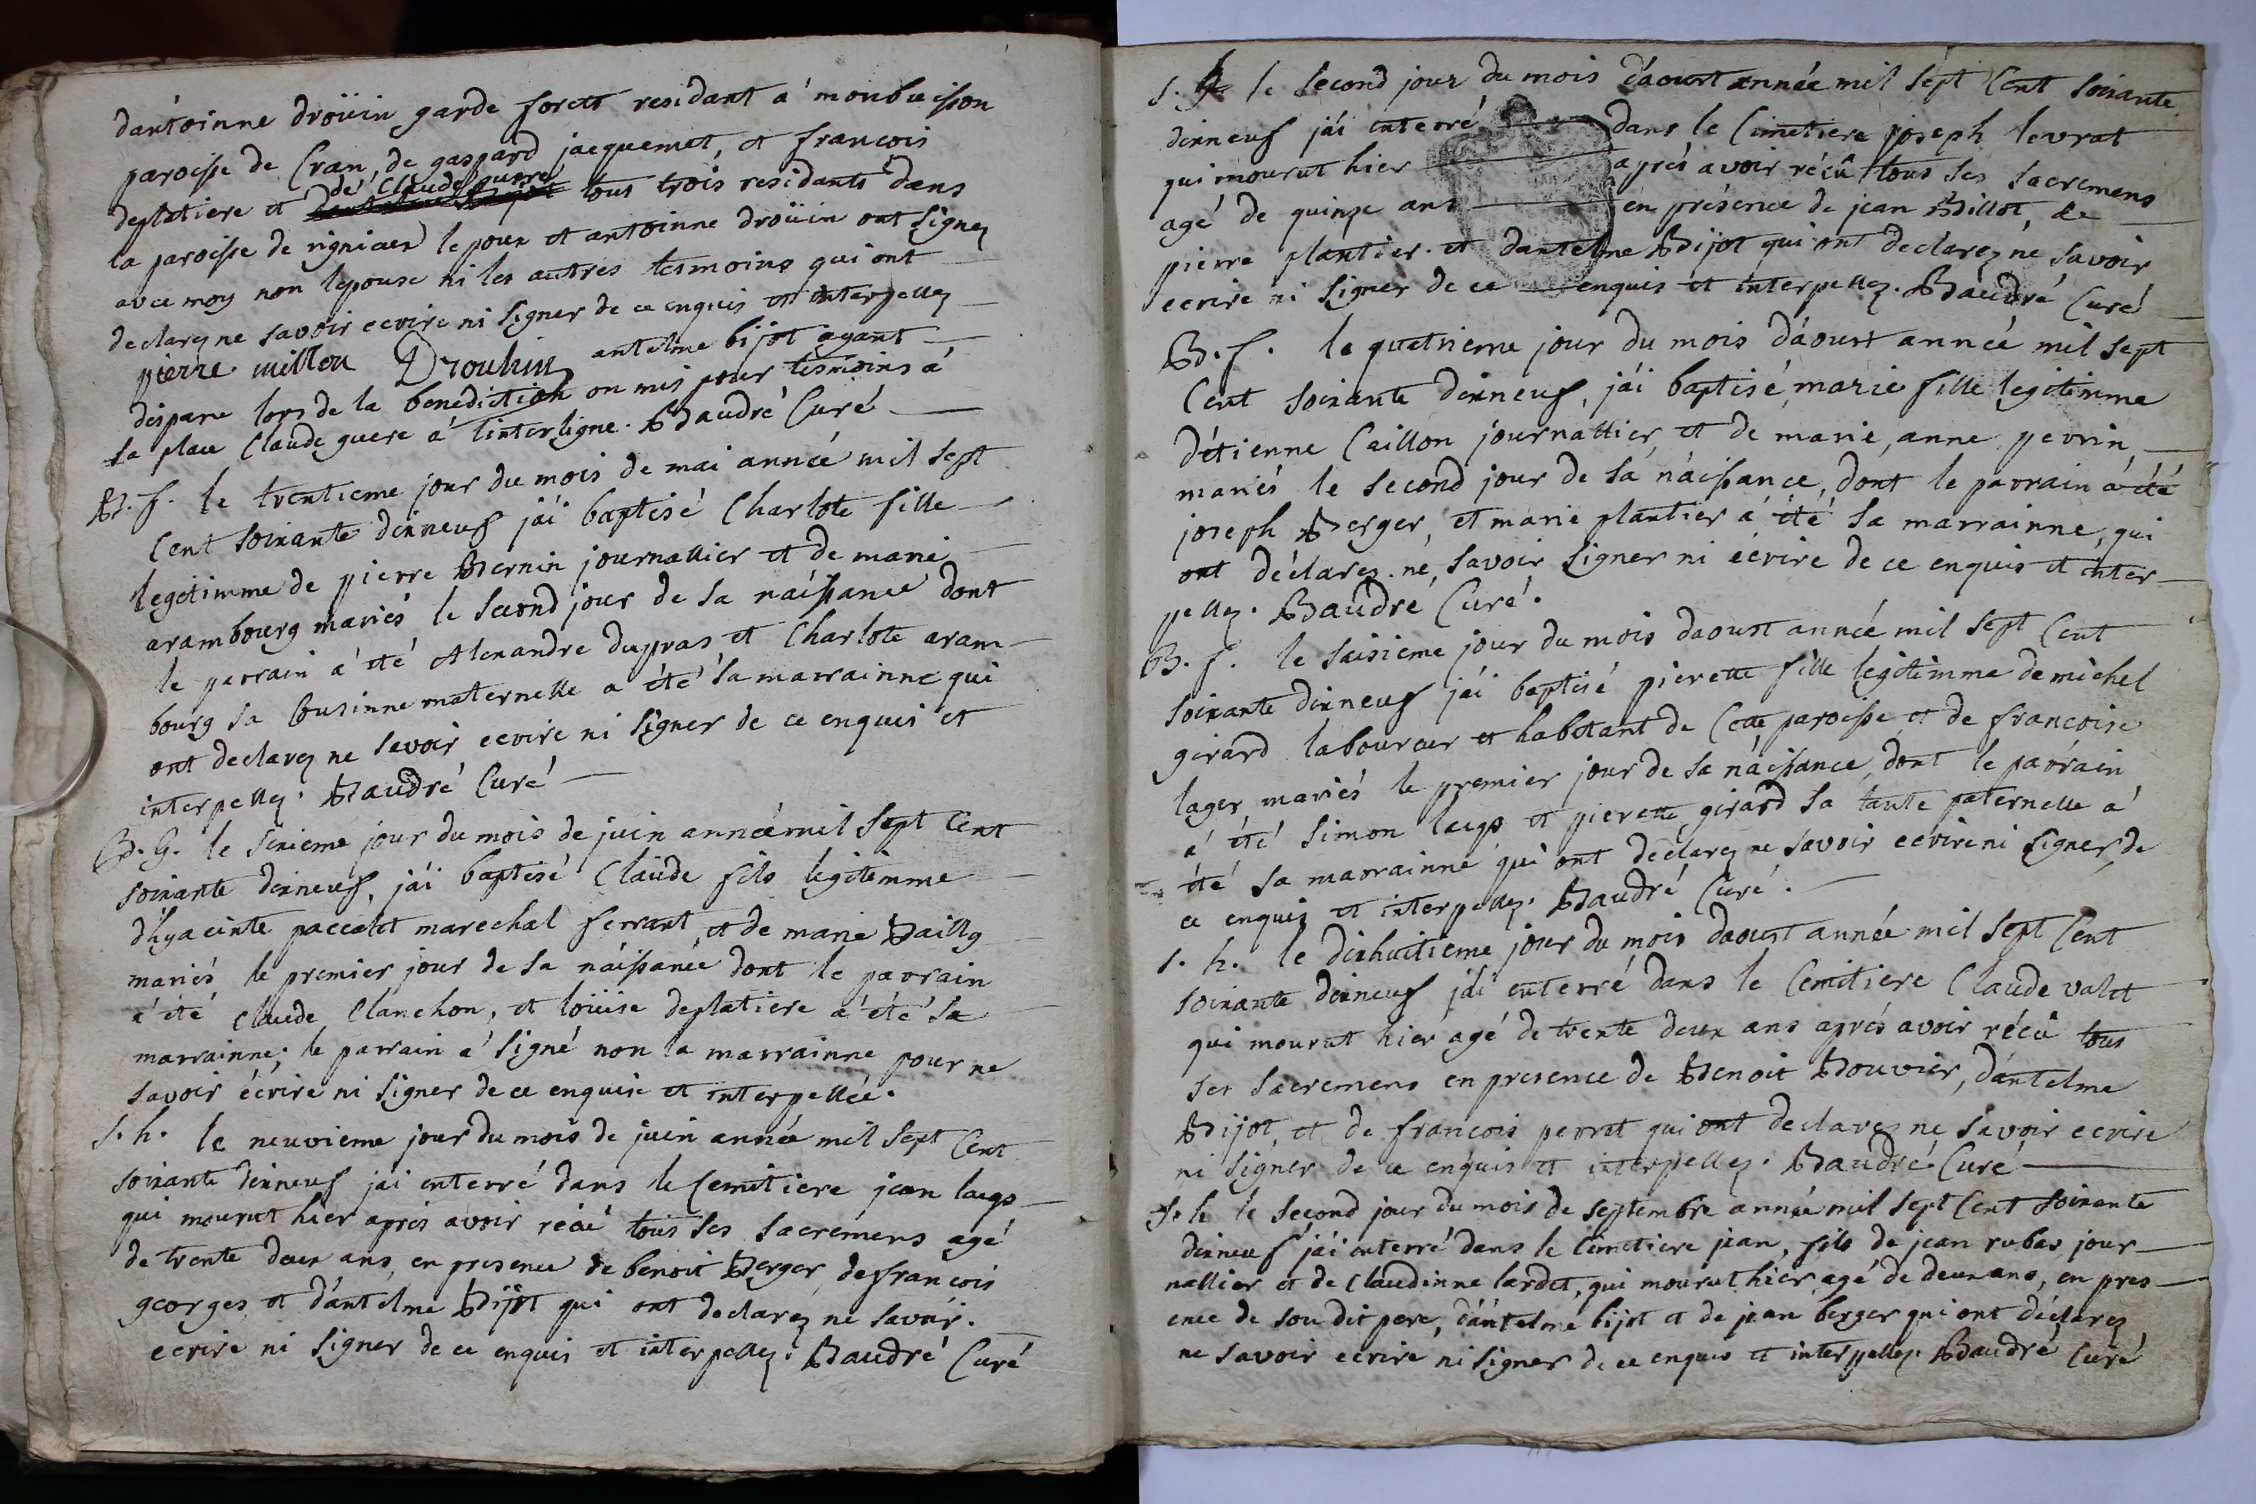 dantoinne droüin garde forett residant a' monbuisson
paroisse de Cran, de gaspard jacquemet, et francois
de Claude guere
deplatiere et tous trois residants dans
la paroisse de rigniaen lepoux et antoinne droüin ont Signez
avec moy non lepouse ni les autres tesmoins qui ont
declarez ne savoir ecrire ni Signer de ce enquis et interpellez
pierre millon Drouhin antelme bijot ayant
disparu lors de la benediction on mis pour tesmoins à
Sa place Claude guere á l'interligne. Baudré Curé
B. f. le trentieme jour du mois de mai année mil Sept
Cent Soixante dixneuf jái baptisé Charlote fille
legitimme de pierre Bernin journallier et de marie
arambourg mariés le Second jour de Sa náissance dont
le parrain á été Alexandre dupras et Charlote aram-
bourg Sa Cousinne maternelle a été Sa marrainne qui
ont declarez ne Savoir ecrire ni Signer de ce enquis et
interpellez. Baudré Curé
B. G. le Sixieme jour du mois de juin année mil Sept Cent
Soixante dixneuf, jái baptisé Claude fils legitimme
d'hyacinte paccalet marechal ferrant, et de marie Bailly
mariés le premier jour de Sa náissance dont le parrain
á été Claude Clanchon, et loüise deplatiere á été Sa
marrainne; le parrain a' Signé non la marrainne pour ne
Savoir écrire ni Signer de ce enquise et interpellée.
S. h. le neuvieme jour du mois de juin année mil Sept Cent
Soixante dixneuf jai enterré dans le Cemitiere jean laugs
qui mourut hier aprés avoir récû tous Ses Sacremens agé
de trente deux ans, en presence de benoit Berger de francois
georges et d'antelme Bijot qui ont declarez ne Savoir
ecrire ni Signer de ce enquis et interpellez. Baudré Curé
S. G. le Second jour du mois d'áoust année mil Sept Cent Soixante
dixneuf jái enterré dans le Cimetiere joseph levrat
qui mourut hier aprés avoir récû tous Ses Sacremens
agé de quinze ans en présence de jean Billot, de
pierre plantier. et dantelme Bijot qui ont declarez né Savoir
ecrire ni Signer de ce enquis et interpellez. Baudré Curé
B. f. le quatrieme jour du mois d'áoust année mil Sept
Cent Soixante dixneuf, jái baptisé marie fille legitimme
d'étienne Caillon journallier, et de marie, anne perrin,
mariés le Second jour de Sa náissance, dont le parrain á été
joseph Berger, et marie plantier á été Sa marrainne, qui
ont déclarez né Savoir Signer ni écrire de ce enquis et inter-
pellez. Baudré Curé.
B. f. le Saisieme jour du mois daoust année mil Sept Cent
Soixante dixneuf jái baptisé pierette fille legitimme de michel
girard laboureur et habitant de Cette paroisse et de francoise
lager, mariés le premier jour de Sa náissance, dont le parrain
á été Simon laugs et pierette girard Sa tante paternelle á
été Sa marrainne qui ont déclarez ne Savoir ecrire ni Signer de
ce enquis et interpellez. Baudré Curé.
S. h. le dixhuitieme jour du mois daoust année mil Sept Cent
Soixante dixneuf jái enterré dans le Cemitiere Claude valet
qui mourut hier agé de trente deux ans aprés avoir récû tous
Ses Sacremens en presence de Benoit Bouvier, d'antelme
Bijot, et de francois perrot qui ont declarez ne Savoir ecrire
ni Signer de ce enquis et interpellez. Baudré Curé
S. h le Second jour du mois de Septembre année mil Sept Cent Soixante
dixneuf jái enterré dans le Cimetiere jean, fils de jean rubas jour-
nallier et de Claudinne lardet, qui mourut hier agé de deux ans, en pres-
ence de Son dit pere, d'ántelme bijot et de jean berger qui ont déclarez
ne Savoir ecrire ni Signer de ce enquis et interpellez. Baudré Curé